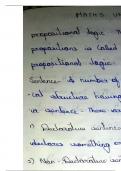 MATHS
propositional logic
propositions is called
propositional logic
Sentence number of
cal structure having
sentence
1) Declarative sentence
declares something
2) Non-Declarative